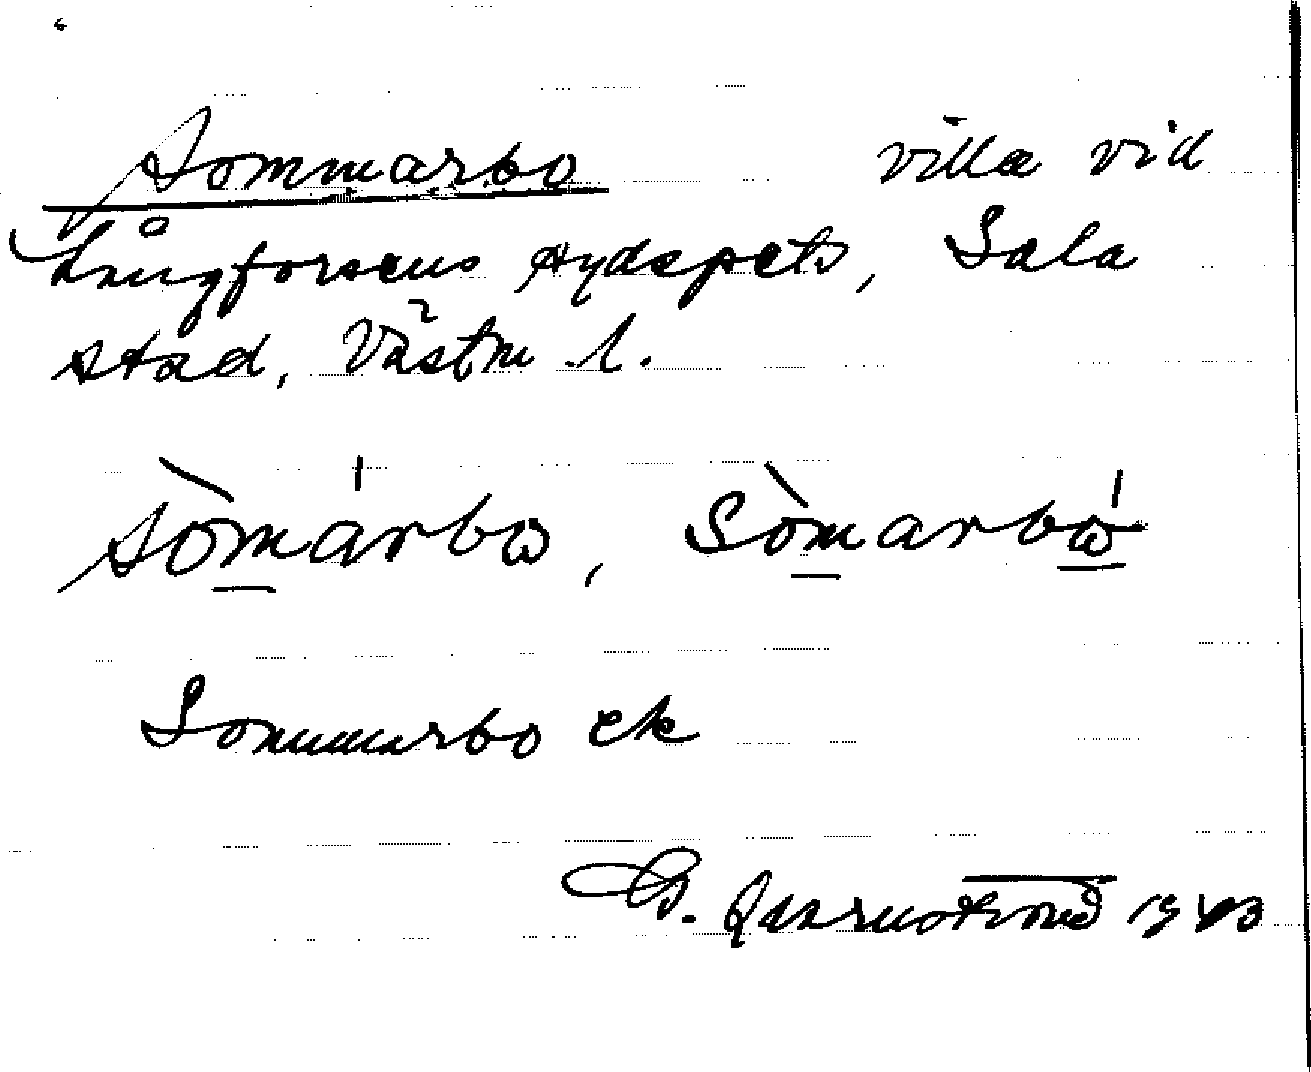 Sommarbo villa vid
Långforsens sydspets, Sala
stad, Västm. l.
sòmárbω, sòmarbώ
Sommarbo ek
G. Qvarnström 1943